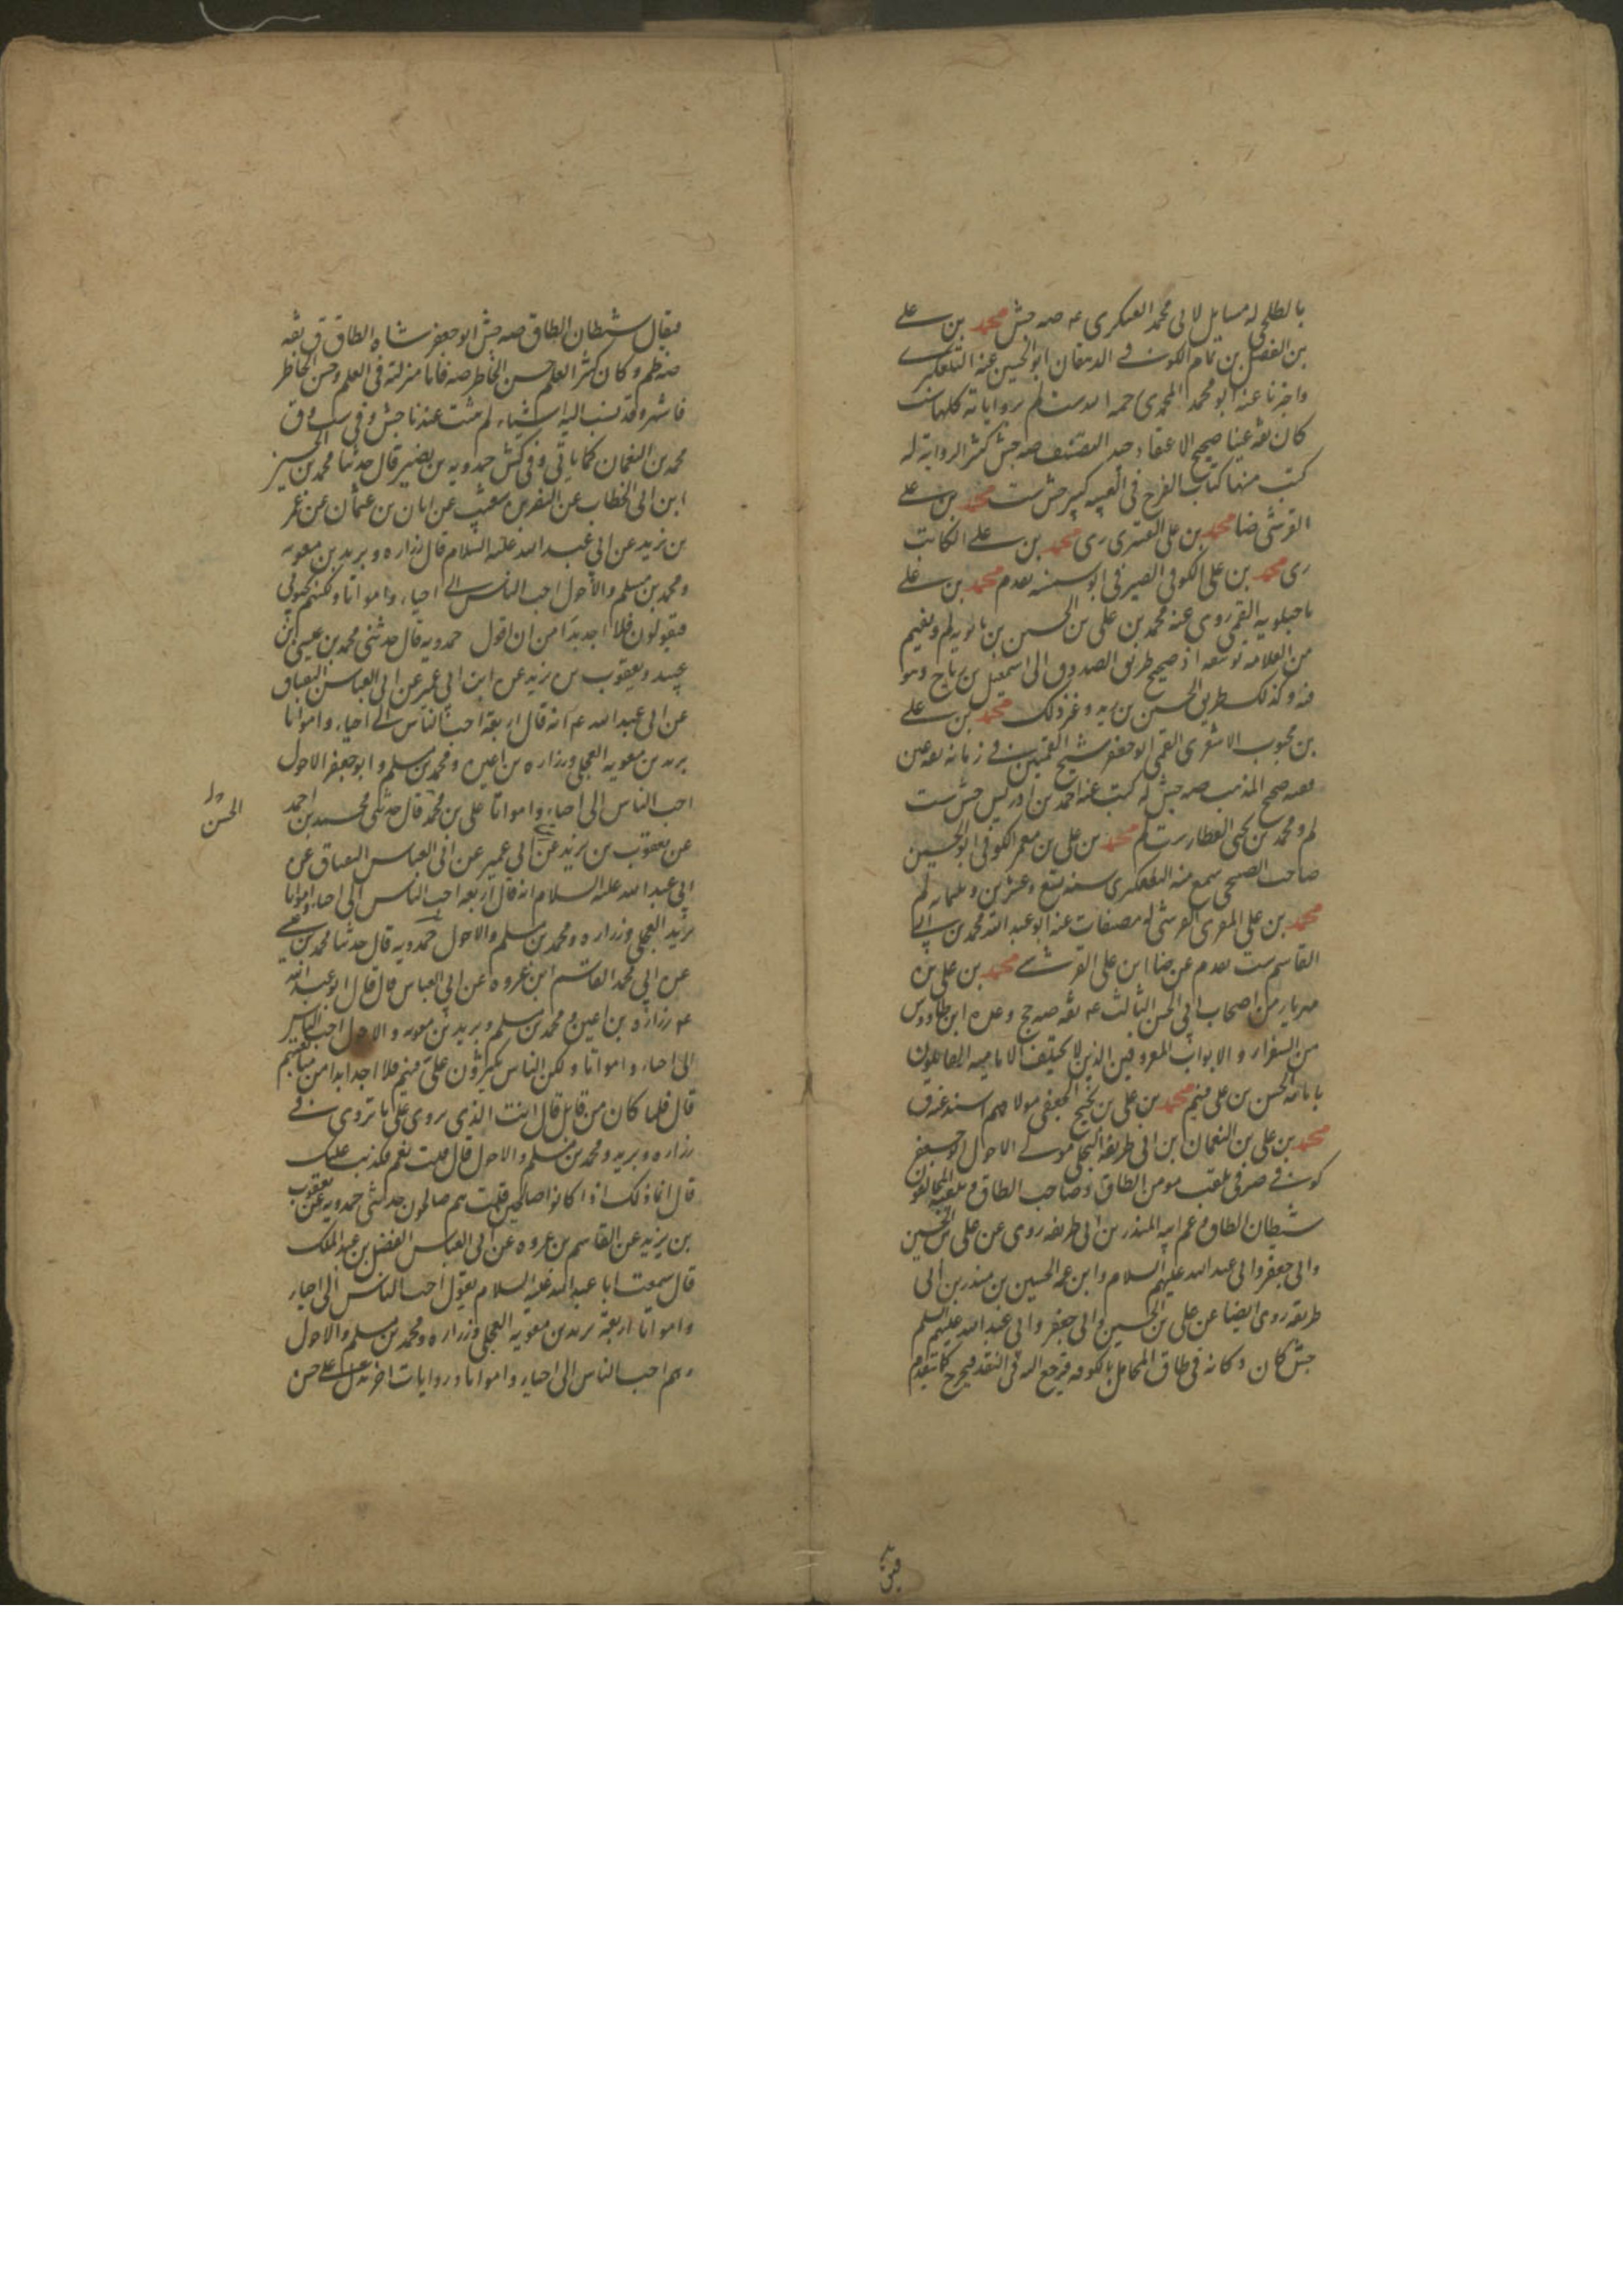 بالطلحی له مسایل لابی محمد العسکری ع صه جش محمد بن علی
بن الفضل بن تمام الکوفی الدهقان ابو الحسین عنه التلعکبری
واخبرنا عنه ابو محمد المحمدی رحمه الله ست لم بروایاته کلها ست
کان ثقة عینا صحیح الاعتقاد جید التصنیف صه جش کثیر الروایة له
کتب منها کتاب الفرج فی الغیبة کبیر جش ست محمد بن علی
القرشی ضا محمد بن علی القسری ری محمد بن علی الکاتب
ری محمد بن علی الکوفی الصیرفی ابو سمینه تقدم محمد بن علی
ماجیلویه القمی روی عنه محمد بن علی بن الحسین بن بابویه لم ویفهم
من العلامة توثیقه اذ صحیح طریق الصدوق الی اسمعیل بن رباح وهو
فیه وکذلک طریق الحسین بن زید وغیر ذلک محمد بن علی
بن محبوب الاشعری القمی ابو جعفر شیخ القمیین فی زمانه ثقة عین
فقیه صحیح المذهب صه جش له کتب عنه احمد بن ادریس جش ست
لم ومحمد بن یحیی العطار ست لم محمد بن علی بن معمر الکوفی ابو الحسین
صاحب الصبیحی سمع منه التلعکبری سنة تسع وعشرین وثلثمائة لم
محمد بن علی المقری القرشی له مصنفات عنه ابو عبد الله محمد بن ابی
القاسم ست تقدم عن ضا ابن علی القرشی محمد بن علی بن
مهزیار من اصحاب ابی الحسن الثالث ع ثقة صه ج وعده ابن طاووس
من السفراء والابواب المعروفین الذین لا یختلف الامامیة القائلون
بامامة الحسن بن علی فیهم محمد بن علی بن نجیح الجعفی مولاهم اسند عنه ق
محمد بن علی بن النعمان بن ابی طریفة البجلی مولی الاحول ابو جعفر
کوفی صرفی یلقب مومن الطاق وصاحب الطاق ویلقبه المخالفون
شیطان الطاق وعم ابیه المنذر بن ابی طریفة روی عن علی بن الحسین
وابی جعفر وابی عبد الله علیهم السلام وابن عمه الحسین بن منذر بن ابی
طریفة روی ایضا عن علی بن الحسین وابی جعفر وابی عبد الله علیهم السلم
جش کان دکانه فی طاق المحامل بالکوفة فیرجع الیه فی النقد فیخرج کما ینقدم
فیق
فیقال شیطان الطاق صه جش ابو جعفر شاه الطاق ق ثقة
صه ظم وکان کثیر العلم حسن الخاطر صه فاما منزلته فی العلم وحسن الخاطر
فاشهر وقد نسب الیه اشیاء لم تثبت عندنا جش وفی ست وق
محمد بن النعمان کما یاتی وفی کش حمدویه بن نصیر قال حدثنا محمد بن الحسین
ابن ابی الخطاب عن النضر بن شعیب عن ابان بن عثمان عن عمر
بن یزید عن ابی عبد الله علیه السلام قال زراره وبرید بن معویه
ومحمد بن مسلم والاحول احب الناس الی احیاء وامواتا ولکنهم یجیؤنی
فیقولون فلا اجد بدا من ان اقول حمدویه قال حدثنی محمد بن عیسی بن
عبید ویعقوب بن یزید عن ابن ابی عمیر عن ابی العباس البقباق
عن ابی عبد الله ع انه قال اربعة احب الناس الی احیاء وامواتا
برید بن معویه العجلی وزراره بن اعین ومحمد بن مسلم وابو جعفر الاحول
احب الناس الی احیاء وامواتا علی بن محمد قال حدثنی محمد بن احمد
عن یعقوب بن یزید عن ابی عمیر عن ابی العباس البقباق عن
ابی عبد الله علیه السلام انه قال اربعة احب الناس الی احیاء وامواتا
برید العجلی وزراره ومحمد بن مسلم والاحول حمدویه قال حدثنا محمد بن عیسی
عن ابی محمد القاسم ابن عروه عن ابی العباس قال قال ابو عبد الله
ع زراره بن اعین ومحمد بن مسلم وبرید بن معویه والاحول احب الناس
الی احیاء وامواتا ولکن الناس یکثرون علی فیهم فلا اجد بدا من متابعتهم
قال فلما کان من قابل قال انت الذی تروی علی ما تروی فی
زراره وبرید ومحمد بن مسلم والاحول قال قلت نعم فکذبت علیک
قال انما ذلک اذا کانوا صالحین قلت هم صالحون حدثنی حمدویه عن یعقوب
بن یزید عن القاسم بن عروه عن ابی العباس الفضل بن عبد الملک
قال سمعت ابا عبد الله علیه السلام یقول احب الناس الی احیاء
وامواتا اربعة برید بن معویه العجلی وزراره ومحمد بن مسلم والاحول
وهم احب الناس الی احیاء وامواتا وروایات اخر تدل علی حسن
الحسن